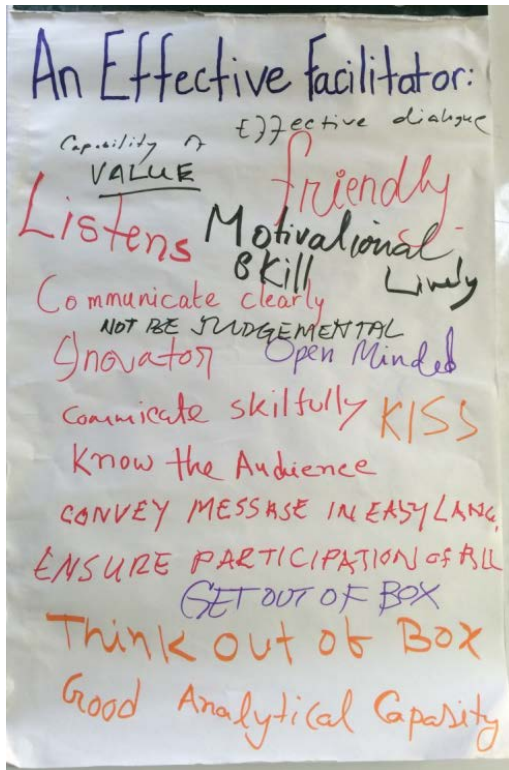 An Effective Facilitator:
Effective dialogue
Capability of
VALUE
friendly
Listens
Motivational
Skill
Lively
Communicate clearly
NOT BE JUDGEMENTAL
Inovator
Open Minded
commicate skilfully
KISS
Know the Audience
CONVEY MESSASE IN EASY LANG.
ENSURE PARTICIPATION of ALL
GET OUT OF BOX
Think out of Box
Good Analytical Capasity